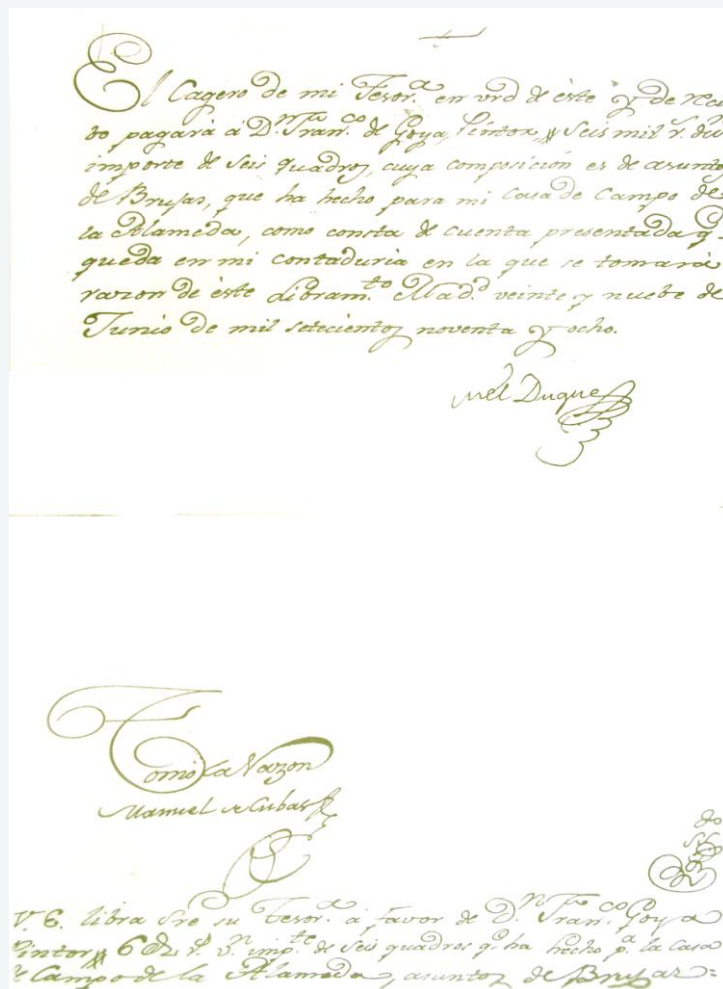 El Cagero de mi Tesor.ª en vrd de éste y de reci
bo pagará á D.n Fran.co de Goya, Pintor, Seis mil r.s de v.n
importe de Seis quadros, cuya composición es de asunto
de Brujas, que ha hecho para mi Casa de Campo de
la Alameda, como consta de cuenta presentada q.
queda en mi contaduria en la que se tomará
razon de éste Libram.to Mad.d veinte y nuebe de
Junio de mil setecientos noventa y ocho.
el Duque
Tomé la Razon
Manuel de Cubas
V. E. libra sre su Tesor.ª á favor de D.n Fran.co Goya
Pintor 6 r.s v.n imp.te de Seis quadros q.e ha hecho p.a la Casa
de Campo de la Alameda, asuntos de Brujas =